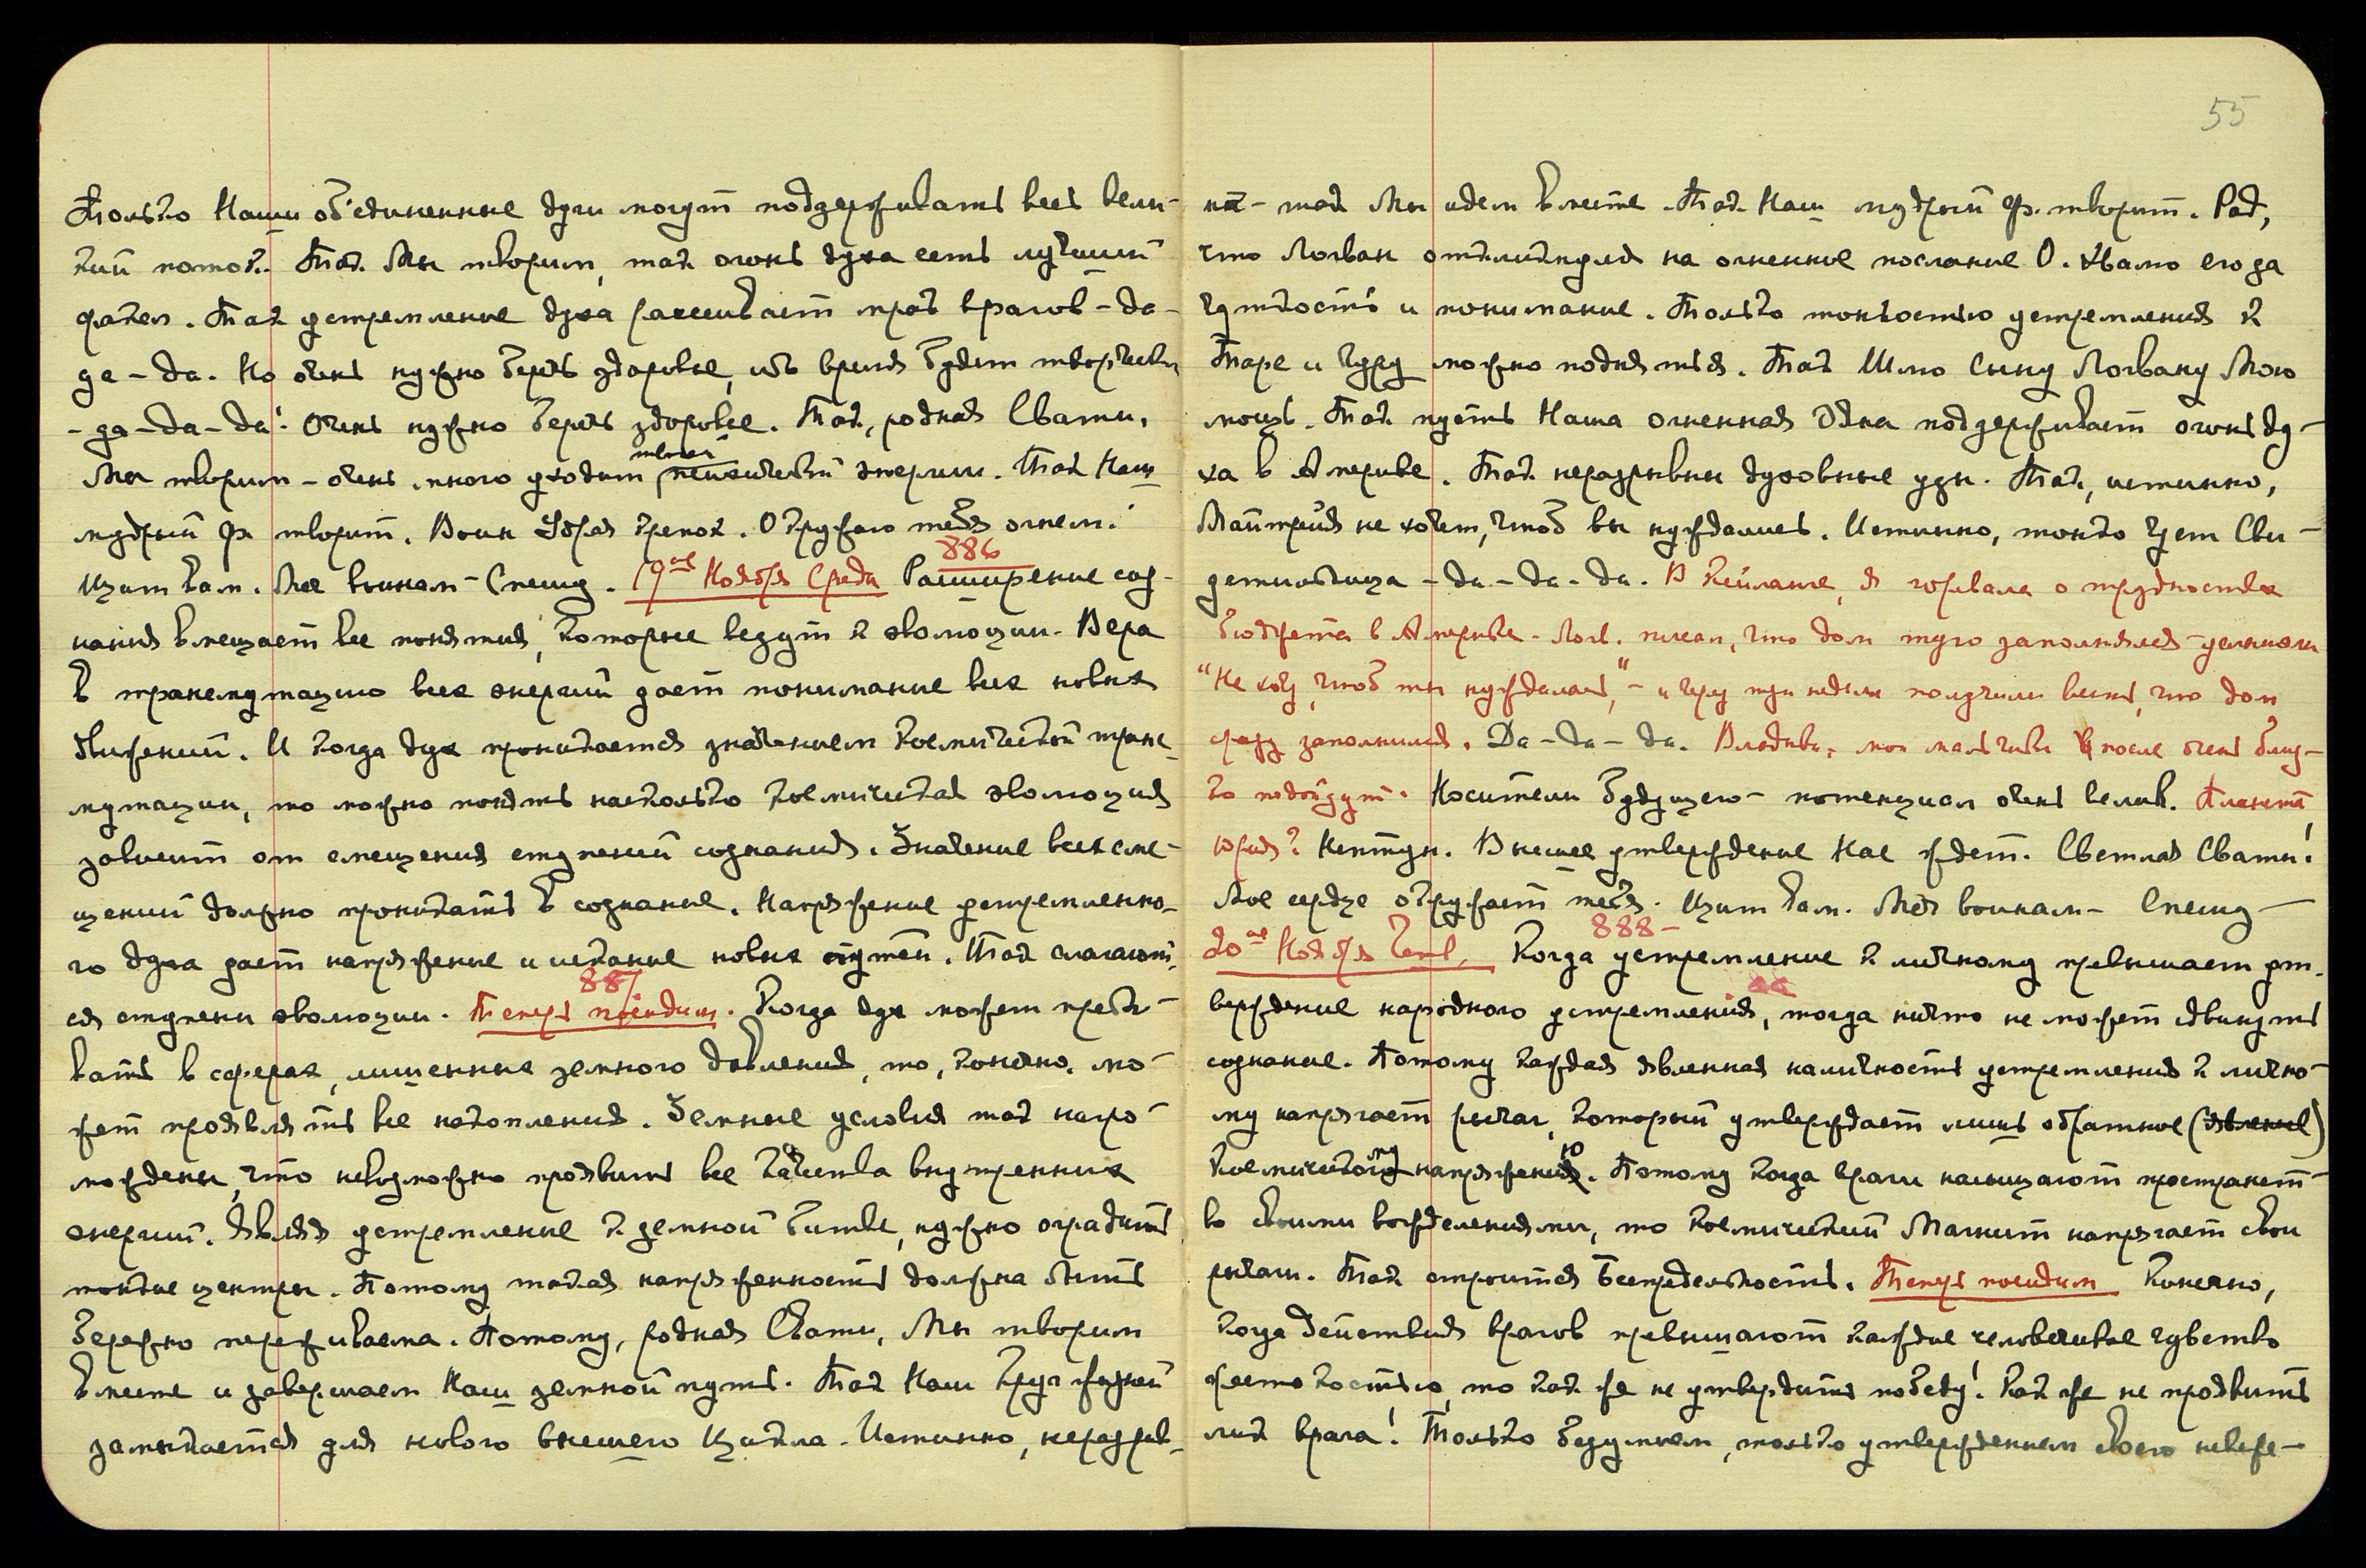 Только Наши об'единенные духи могут поддерживать весь вели-
кий поток. Так Мы творим, так огонь духа есть лучший
факел. Так устремление духа рассеивает мрак врагов - да -
да - да. Но очень нужно беречь здоровье, ибо время будет творчески
- да - да - да! Очень нужно беречь здоровье. Так, родная Свати,
Мы творим - очень много уходит психической энергии. Так Наш
мудрый Ф. творит. Воин Удрая крепок. Окружаю тебя огнем!
Щит вам. Мое воинам - Спешу. 19ое Ноября Среда 886 Расширение соз-
нания вмещает все понятия, которые ведут к эволюции. Вера
в трансмутацию всех энергий дает понимание всех новых
движений. И когда дух проникается значением космической транс-
мутации, то можно понять насколько космическая эволюция
зависит от смещения ступеней сознания. Значение всех сме-
щений должно проникать в сознание. Напряжение устремленно-
го духа дает напряжение и искание новых путей. Так слагают-
ся ступени эволюции. 887 Теперь посидим. Когда дух может пребы-
вать в сферах, лишенных земного давления, то, конечно, мо-
жет проявлять все накопления. Земные условия так нагро-
мождены, что невозможно проявить все качества внутренних
энергий. Являя устремление к земной битве, нужно оградить
тонкие центры. Потому такая напряженность должна быть
бережно переживаема. Потому, родная Свати, Мы творим
вместе и завершаем Наш земной путь. Так Наш круг жизней
замыкается для нового высшего цикла. Истинно, неразрыв-
55
но - так Мы идем вместе. Так Наш мудрый Ф. творит. Рад,
что Логван откликнулся на огненное послание О. Хвалю его за
чуткость и понимание. Только тонкостью устремления к
Таре и Гуру можно подняться. Так Шлю сыну Логвану Мою
мощь. Так пусть Наша огненная Одна поддерживает огонь ду-
ха в Америке. Так неразрывны духовные узы. Так, истинно,
Майтрейя не хочет, чтоб вы нуждались. Истинно, тонко чует Сви-
детельница - да - да - да. В Кейланге, я горевала о трудностях
бюджета в Америке. Логв. писал, что дом туго заполнялся - услышали
“Не хочу, чтоб ты нуждалась,” - и через три недели получили весть, что дом
сразу заполнился. Да - да - да. Владыка, мои мальчики после очень близ-
ко подойдут. Носители будущего - потенциал очень велик. Планета
Юрия? Нептун. Высшее утверждение Нас ждет. Светлая Свати!
Мое сердце окружает тебя. Щит вам. Моя воинам - Спешу -
20ое Ноября Четв. 888 - Когда устремление к личному превышает ут-
верждение народного устремления, тогда ничто не может сдвинуть
сознание. Потому каждая явленная наличность устремления к лично-
му напрягает рычаг, который утверждает лишь обратное (явление)
космическому напряжению. Потому когда враги насыщают пространст-
во своими вожделениями, то космический Магнит напрягает свои
рычаги. Так строится Беспредельность. Теперь посидим Конечно,
когда действия врагов превышают каждое человеческое чувство
жестокостью, то как же не утвердить победу! Как же не проявить
лик врага! Только безумием, только утверждением своего невеже-